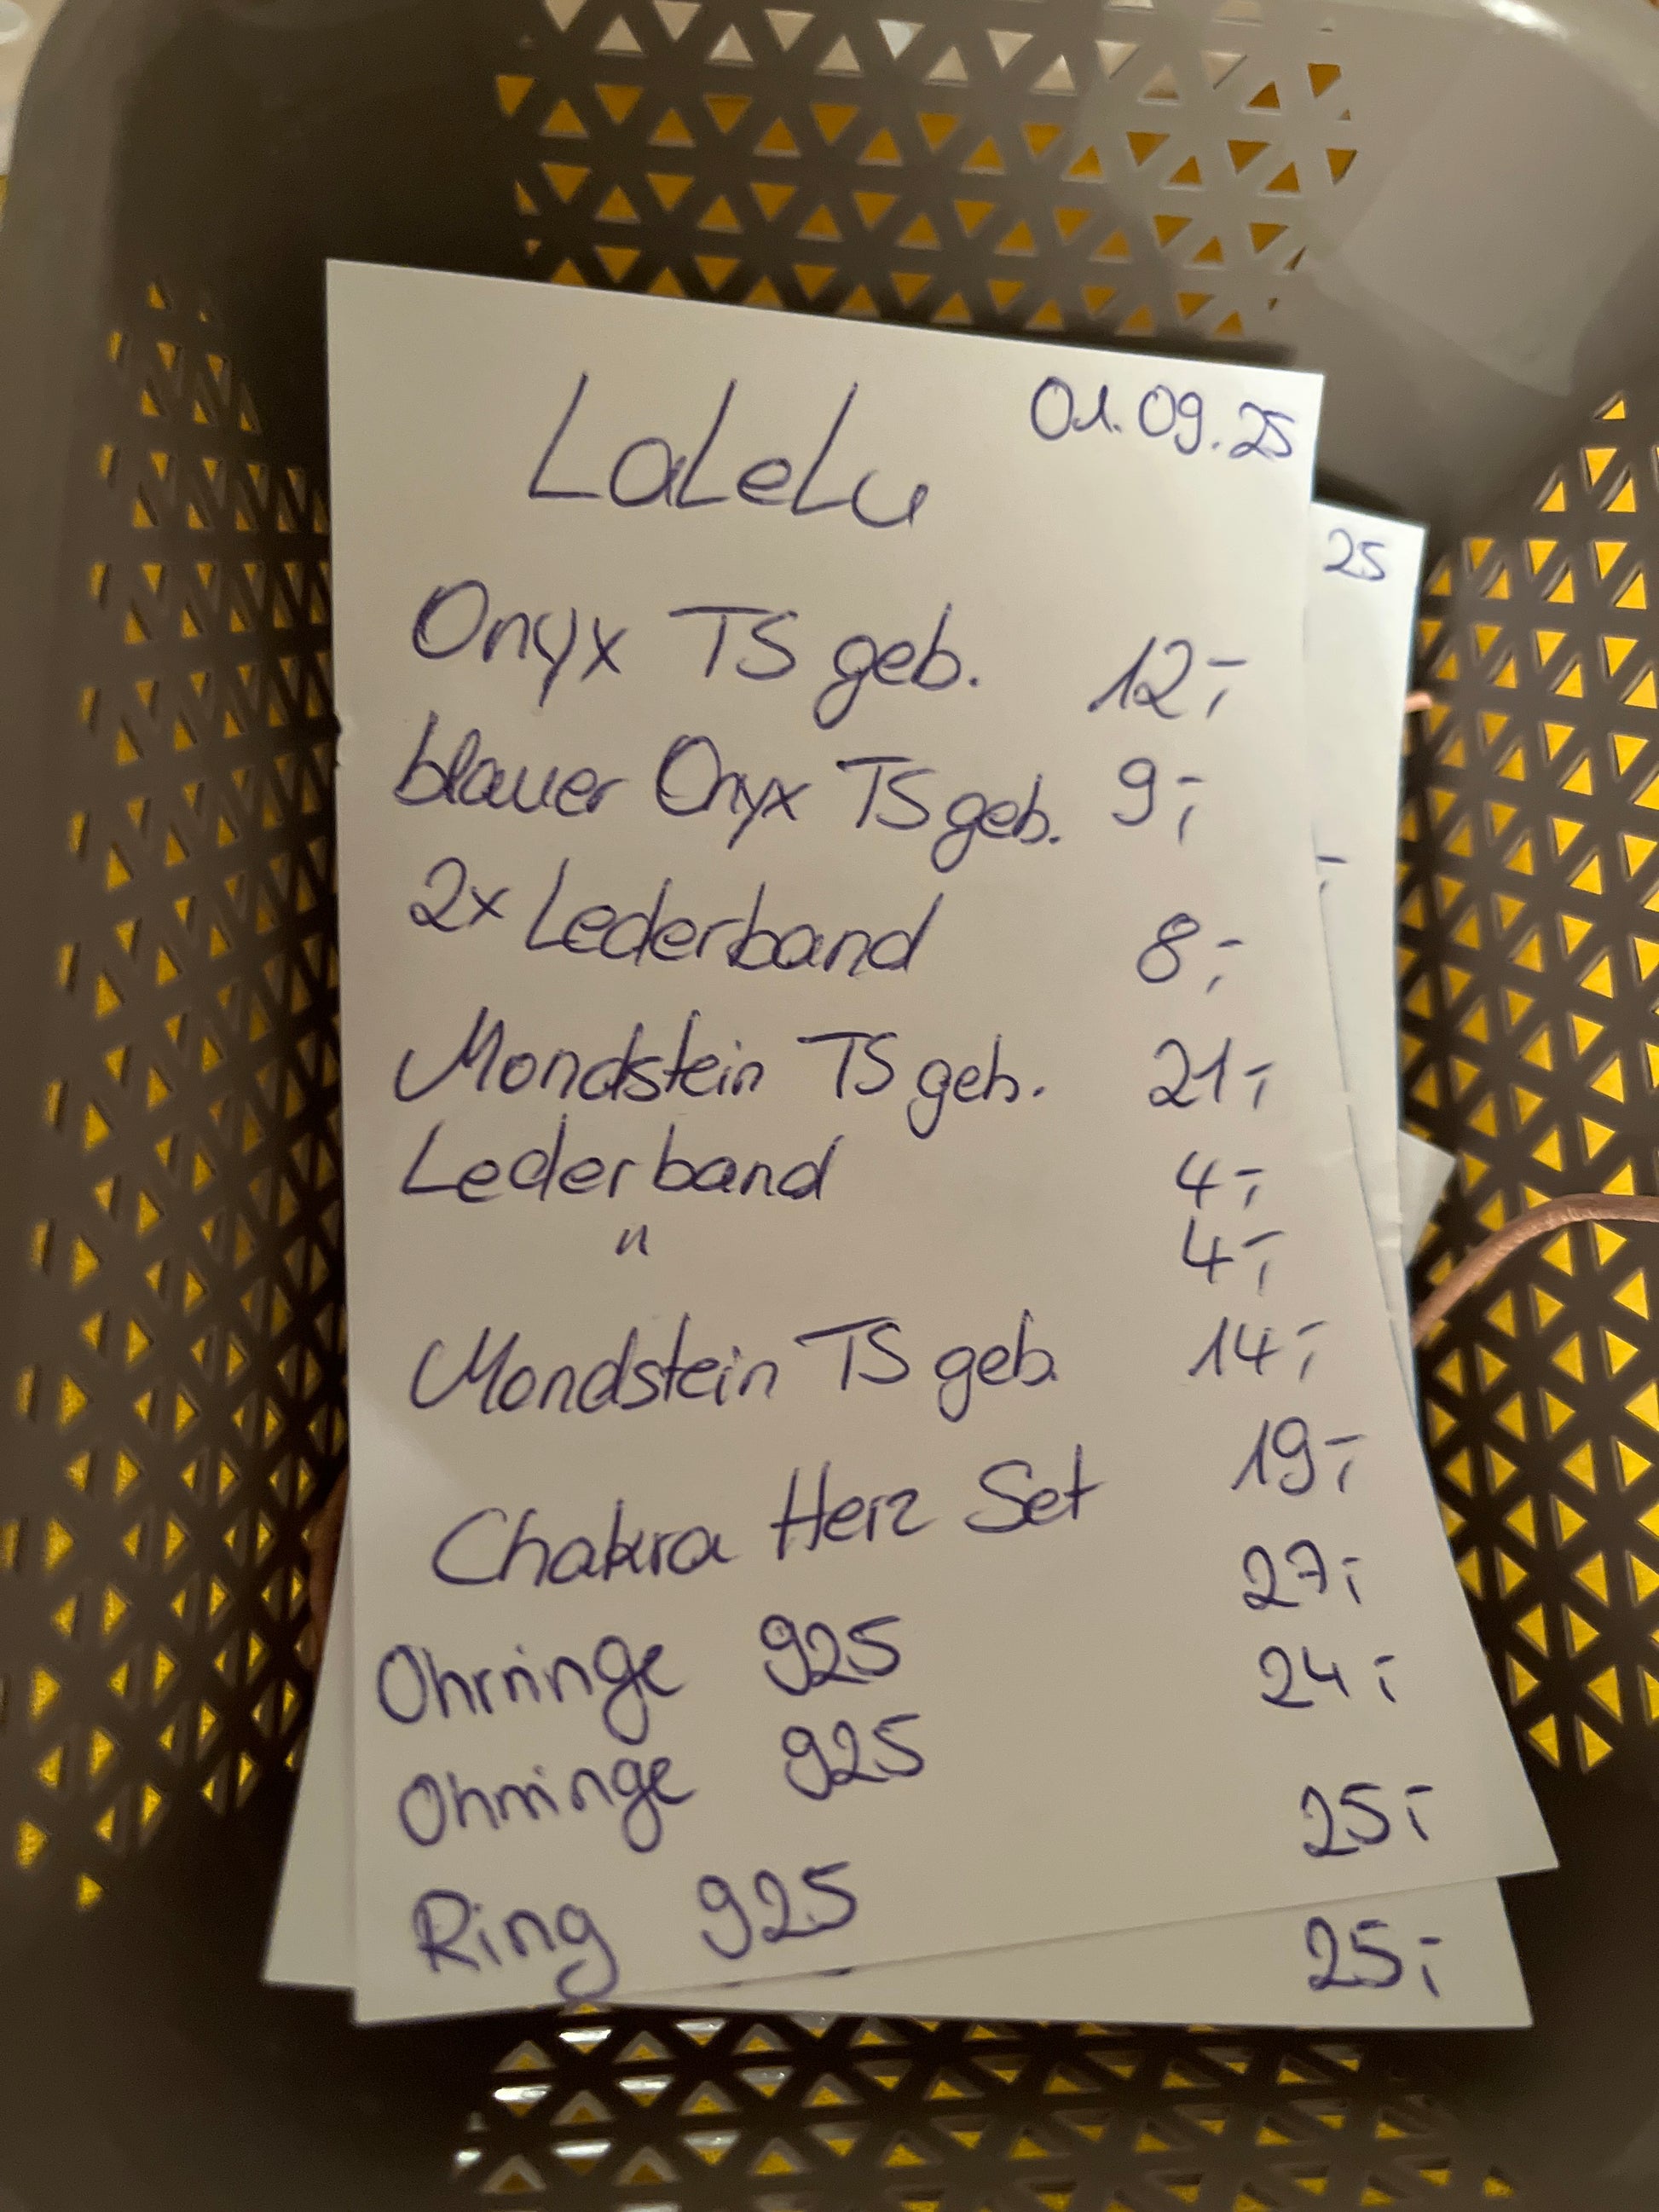 LaLeLu 01.09.25
Onyx TS geb. 12,-
blauer Onyx TS geb. 9,-
2x Lederband 8,-
Mondstein TS geb. 21,-
Lederband 4,-
" 4,-
Mondstein TS geb. 14,-
Chakra Herz Set 19,-
Ohrringe 925 27,-
Ohrringe 925 24,-
Ring 925 25,-
25
,-
25,-